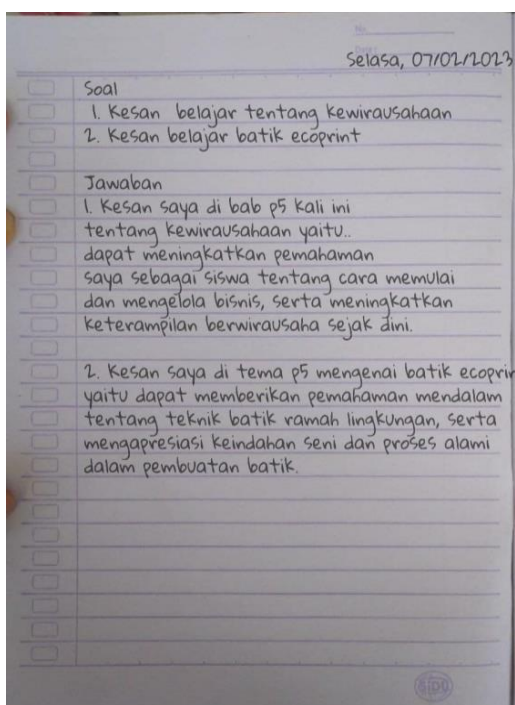 No.
Date:
Selasa, 07/02/2023
Soal
1. Kesan belajar tentang kewirausahaan
2. Kesan belajar batik ecoprint
Jawaban
1. Kesan saya di bab p5 kali ini
tentang kewirausahaan yaitu..
dapat meningkatkan pemahaman
saya sebagai siswa tentang cara memulai
dan mengelola bisnis, serta meningkatkan
keterampilan berwirausaha sejak dini.
2. Kesan saya di tema p5 mengenai batik ecoprin
yaitu dapat memberikan pemahaman mendalam
tentang teknik batik ramah lingkungan, serta
mengapresiasi keindahan seni dan proses alami
dalam pembuatan batik.
SIDU